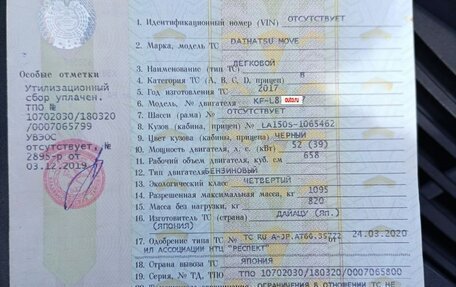 1. Идентификационный номер (VIN) ОТСУТСТВУЕТ
2. Марка, модель ТС DAIHATSU MOVE
3. Наименование (тип ТС) ЛЕГКОВОЙ
4. Категория ТС (A, B, C, D, прицеп) B
5. Год изготовления ТС 2017
6. Модель, № двигателя KF-L8 auto.ru 7
7. Шасси (рама) № ОТСУТСТВУЕТ
8. Кузов (кабина, прицеп) № LA150S-1065462
9. Цвет кузова (кабины, прицепа) ЧЕРНЫЙ
10. Мощность двигателя, л. с. (кВт) 52 (39)
11. Рабочий объем двигателя, куб. см 658
12. Тип двигателя БЕНЗИНОВЫЙ
13. Экологический класс ЧЕТВЕРТЫЙ
14. Разрешенная максимальная масса, кг 1095
15. Масса без нагрузки, кг 820
16. Изготовитель ТС (страна) ДАЙАЦУ (ЯП.)
(ЯПОНИЯ)
17. Одобрение типа ТС № ТС RU А-JP.АТ66.35722 от 24.03.2020
ИЛ АССОЦИАЦИИ НТЦ "РЕСПЕКТ"
18. Страна вывоза ТС ЯПОНИЯ
19. Серия, № ТД, ТПО ТПО 10702030/180320/0007065800
ОГРАНИЧЕНИЯ В ОТНОШЕНИИ ТС НЕ
Особые отметки
Утилизационный
сбор уплачен.
ТПО №
10702030/180320
/0007065799
УВЭОС
отсутствует, №
2895-р от
03.12.2019